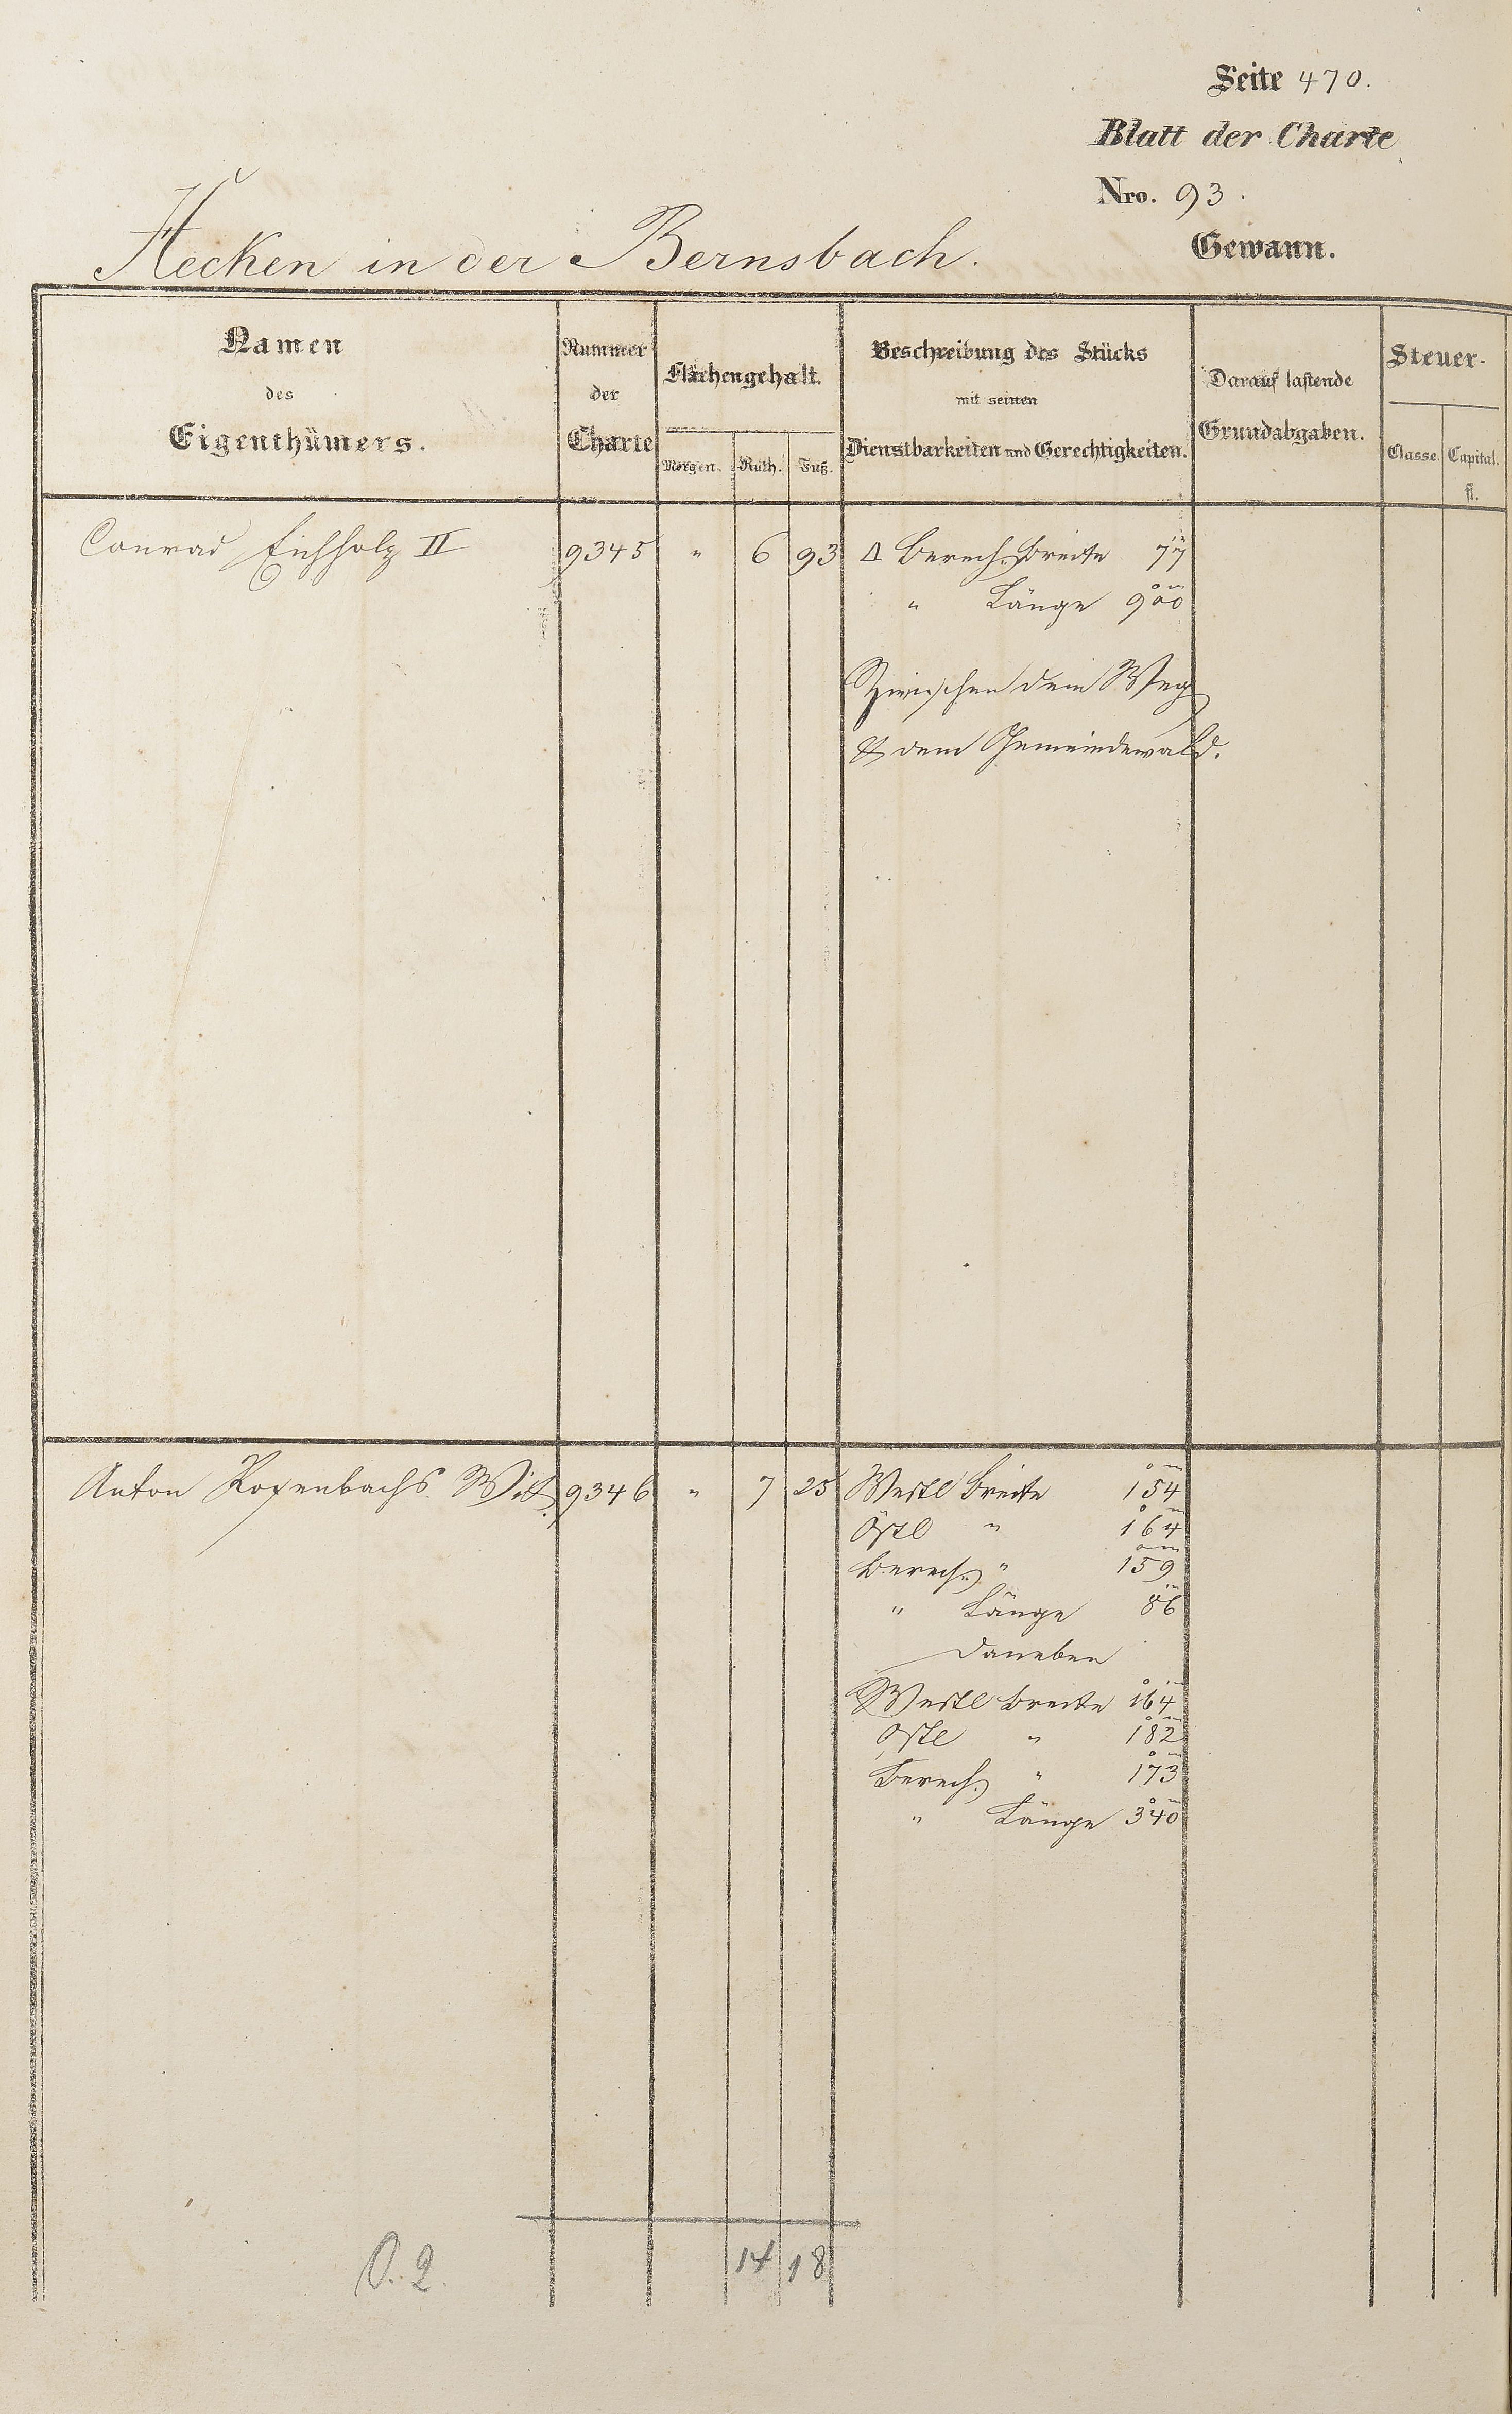 Seite 470.
Blatt der Charte
Nro. 93.
Hecken in der Bernsbach. Gewann.
Namen
des
Eigenthümers.
Nummer
der
Charte
Flächengehalt.
Morgen. Ruth. Fuß.
Beschreibung des Stücks
mit seinen
Dienstbarkeiten und Gerechtigkeiten.
Darauf lastende
Grundabgaben.
Steuer-
Classe. Capital.
fl.
Conrad Eichholz II 9345 " 6 93 Δ Berech. Breite 77
" Länge 900
Zwischen dem Weg
& dem Gemeindewald.
Anton Rosenbachs Witt. 9346 " 7 25 Westl Breite 154
Östl " 164
Berech. " 159
" Länge 86
Daneben
Westl Breite 164
Östl " 182
Berech. " 173
" Länge 340
14 18